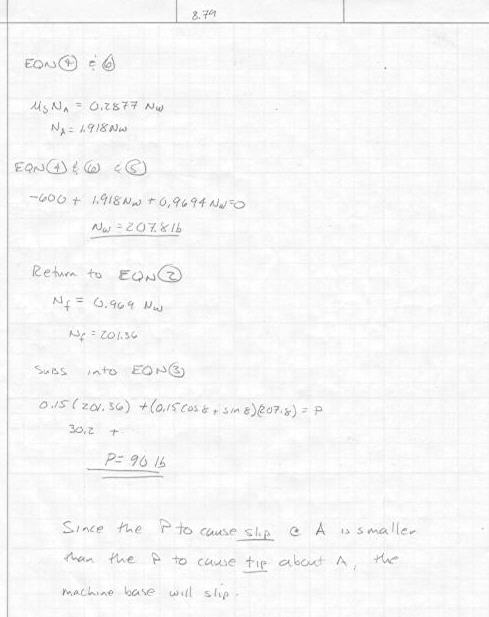 8.74
EQN ④ & ⑥
μsNA = 0.2877 Nw
NA = 1.918 Nw
EQN ④ & ⑥ & ⑤
-600 + 1.918 Nw + 0.9694 Nw = 0
Nw = 207.8 lb
Return to EQN ②
Nf = 0.969 Nw
Nf = 201.36
Subs into EQN ③
0.15(201.36) + (0.15 cos 8 + sin 8)(207.8) = P
30.2 +
P = 90 lb
Since the P to cause slip @ A is smaller
than the P to cause tip about A, the
machine base will slip.